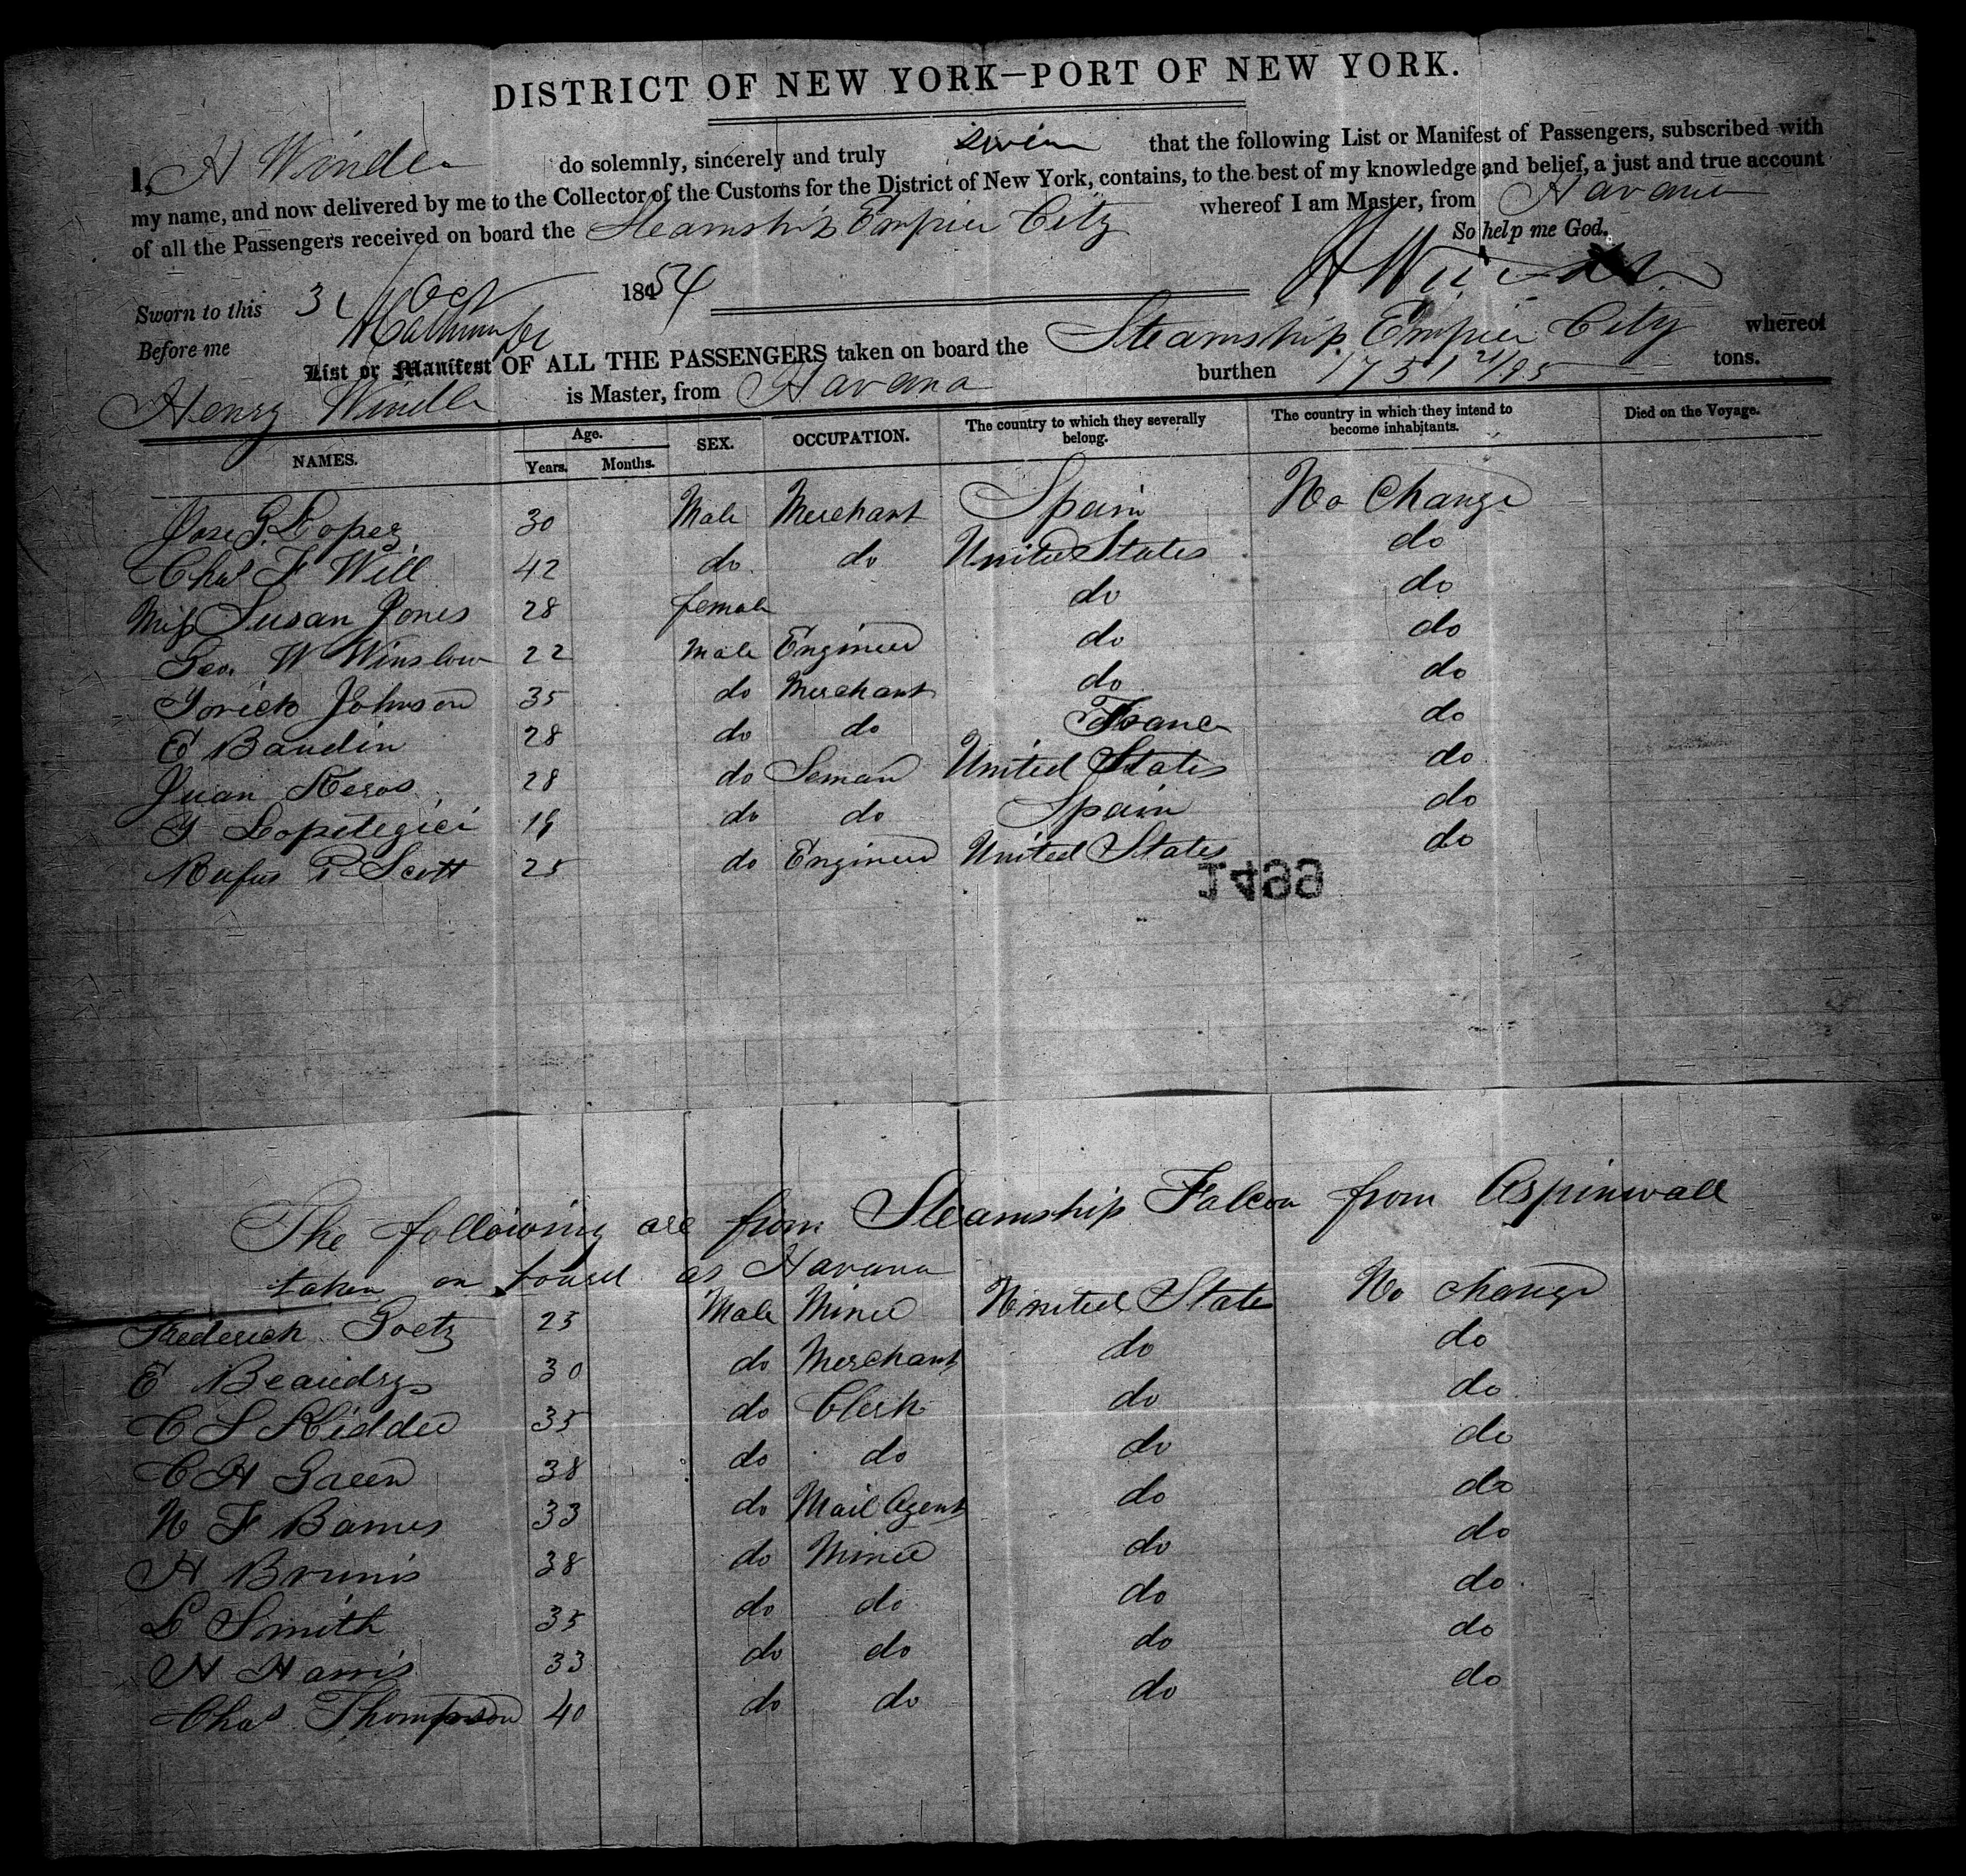 DISTRICT OF NEW YORK—PORT OF NEW YORK.
I, H Windle do solemnly, sincerely and truly swear that the following List or Manifest of Passengers, subscribed with
my name, and now delivered by me to the Collector of the Customs for the District of New York, contains, to the best of my knowledge and belief, a just and true account
of all the Passengers received on board the Steamship Empire City whereof I am Master, from Havana
So help me God.
Sworn to this 31 Oct 1854 H Windle
Before me
List or Manifest OF ALL THE PASSENGERS taken on board the Steamship Empire City whereof
Henry Windle is Master, from Havana burthen 1751 21/95 tons.
NAMES. Age. Years. Months. SEX. OCCUPATION. The country to which they severally belong. The country in which they intend to become inhabitants. Died on the Voyage.
Jose G. Lopez 30 Male Merchant Spain No Change
Chas F Will 42 do do United States do
Miss Susan Jones 28 female do do
Geo. W Winslow 22 Male Engineer do do
Yorick Johnson 35 do Merchant do do
E Baudin 28 do do France do
Juan Keros 28 do Seman United States do
Y Lopetegici 19 do do Spain do
Rufus P Scott 25 do Engineer United States do
1499
The following are from Steamship Falcon from Aspinwall
taken on board at Havana
Frederich Goetz 25 Male Miner United State No change
E Beaudry 30 do Merchant do do
C S Kidder 35 do Clerk do do
C H Green 38 do do do do
N F Barnes 33 do Mail Agent do do
H Brunis 38 do Miner do do
L Smith 35 do do do do
H Harris 33 do do do do
Chas Thompson 40 do do do do